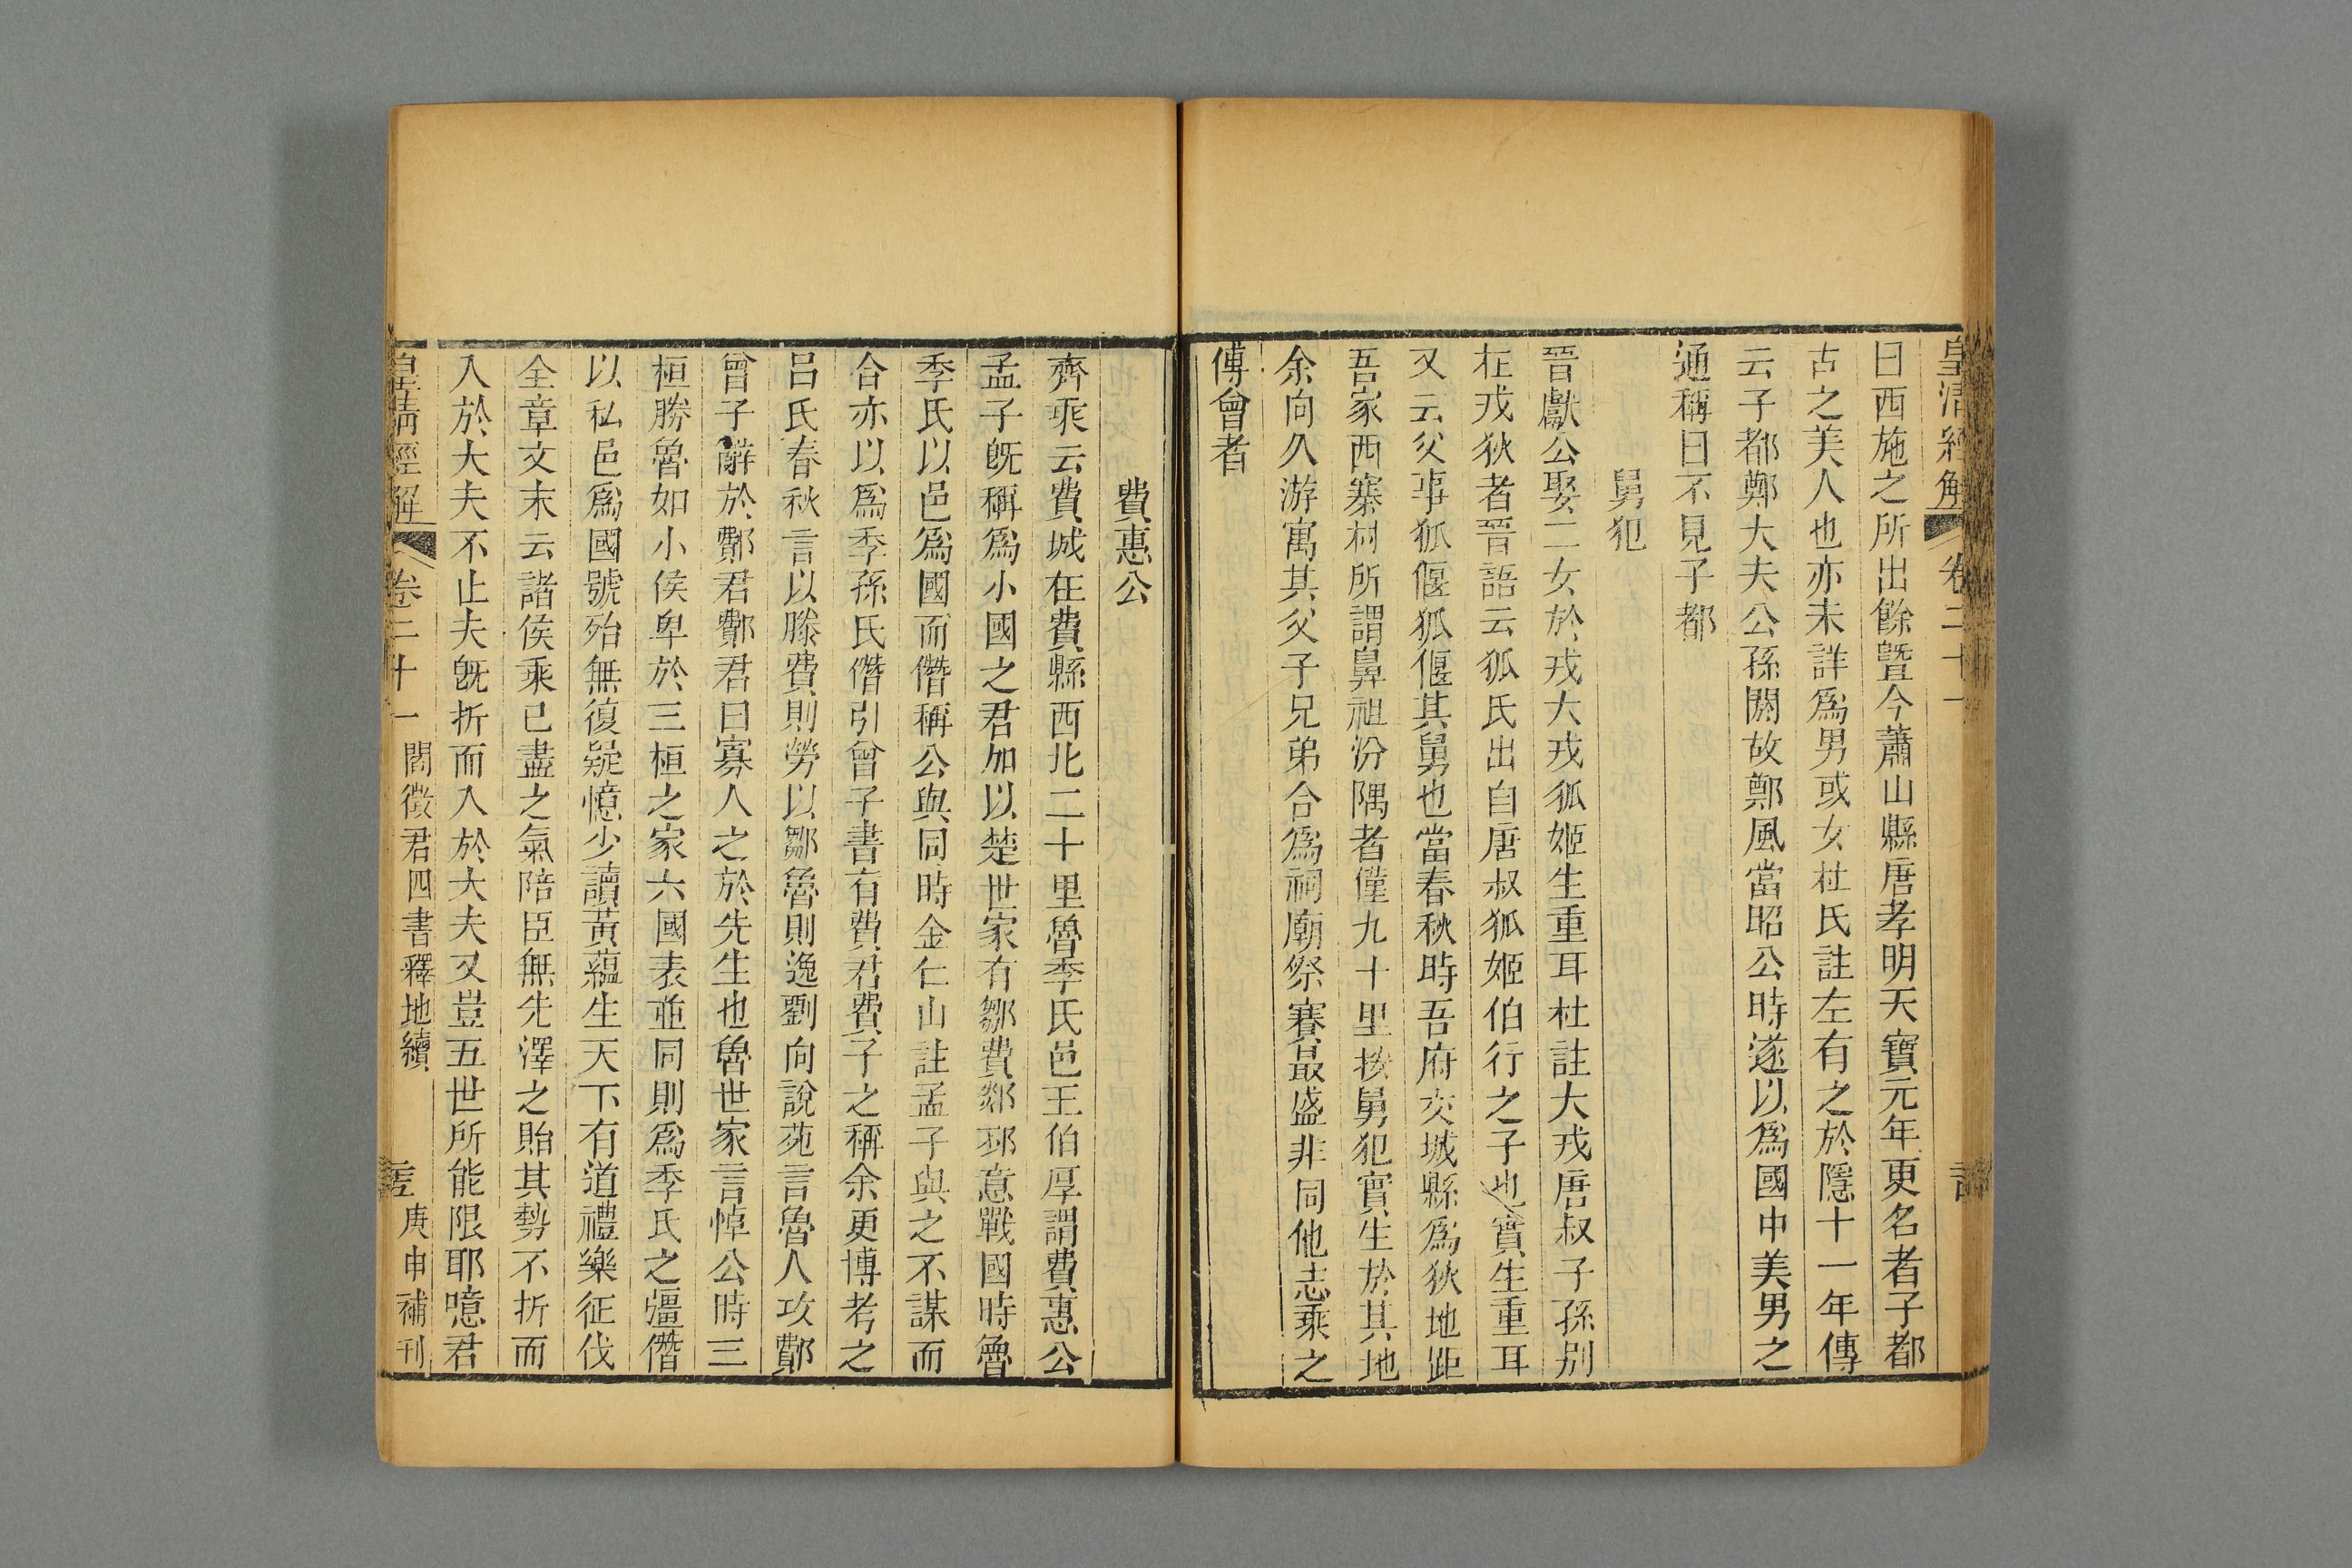 皇清經解 卷二十一
曰西施之所出餘暨今蕭山縣唐孝明天寶元年更名者子都
古之美人也亦未詳爲男或女杜氏註左有之於隱十一年傳
云子都鄭大夫公孫閼故鄭風當昭公時遂以爲國中美男之
通稱曰不見子都
舅犯
晉獻公娶二女於戎大戎狐姬生重耳杜註大戎唐叔子孫別
在戎狄者晉語云狐氏出自唐叔狐姬伯行之子也實生重耳
又云父事狐偃狐偃其舅也當春秋時吾府交城縣爲狄地距
吾家西寨村所謂鼻祖汾隅者僅九十里挨舅犯實生於其地
余向久游寓其父子兄弟合爲祠廟祭賽最盛非同他志乘之
傅會者
費惠公
齊乘云費城在費縣西北二十里魯季氏邑王伯厚謂費惠公
孟子旣稱爲小國之君加以楚世家有鄒費郯邳意戰國時魯
季氏以邑爲國而僭稱公與同時金仁山註孟子與之不謀而
合亦以爲季孫氏僭引曾子書有費君費子之稱余更博考之
呂氏春秋言以滕費則勞以鄒魯則逸劉向說苑言魯人攻鄪
曾子辭於鄪君鄪君曰寡人之於先生也魯世家言悼公時三
桓勝魯如小侯卑於三桓之家六國表並同則爲季氏之彊僭
以私邑爲國號殆無復疑憶少讀黃蘊生天下有道禮樂征伐
全章文末云諸侯乘已盡之氣陪臣無先澤之貽其勢不折而
入於大夫不止夫旣折而入於大夫又豈五世所能限耶噫君
皇清經解 卷二十一 閻徵君四書釋地續 庚申補刊